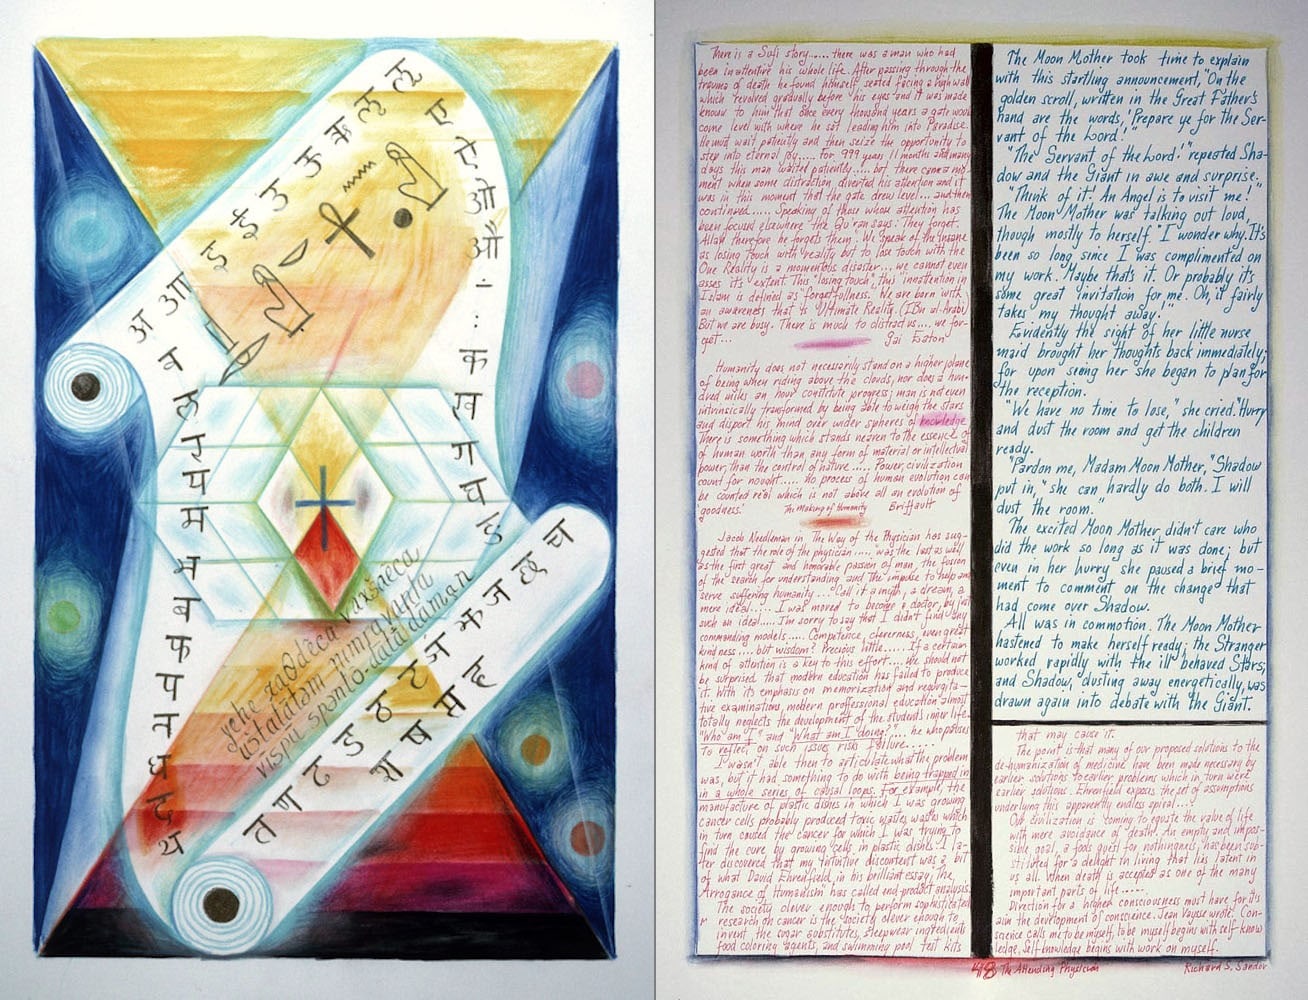 अ आ इ ई उ ऊ ऋ ऌ ॡ
ए ऐ ओ औ
क ख ग घ ङ
व ल र य म भ ब फ प न ध द थ
yehe zaOdēca vaxšaeca
uštatātəm nimravanta
vispu spəntō-dātā dāman
च छ ज झ
त ण ड ठ ट
श ष स ह
There is a Sufi story..... there was a man who had
been inattentive his whole life. After passing through the
trauma of death he found himself seated facing a high wall
which revolved gradually before his eyes and it was made
known to him that once every thousand years a gate would
come level with where he sat leading him into Paradise.
He must wait patiently and then seize the opportunity to
step into eternal joy..... For 999 years 11 months and many
days this man waited patiently..... but there came a mo-
ment when some distraction diverted his attention and it
was in this moment that the gate drew level.... and then
continued..... Speaking of those whose attention has
been focused elsewhere the Qu'ran says: They forget
Allah therefore he forgets them. We speak of the insane
as losing touch with reality but to lose touch with the
One Reality is a momentous disaster.... we cannot even
asses it's extent. This "losing touch", this "innattention" in
Islam is defined as forgetfullness. We are born with
an awareness that is Ultimate Reality. (IBn al-Arabi)
But we are busy. There is much to distract us.... we for-
get... Gai Eaton
Humanity does not necessarily stand on a higher plane
of being when riding above the clouds, nor does a hun-
dred miles an hour constitute progress; man is not even
intrinsically transformed by being able to weigh the stars
and disport his mind over wider spheres of knowledge.
There is something which stands nearer to the essence of
of human worth than any form of material or intellectual
power, than the control of nature..... Power, civilization
count for nought..... no process of human evolution can
be counted real which is not above all an evolution of
'goodness.' The Making of Humanity Briffault
Jacob Needleman in The Way of the Physician has sug-
gested that the role of the physician..... was the last as well
as the first great and honorable passion of man, the fusion
of the search for understanding and the impulse to help and
serve suffering humanity.... Call it a myth, a dream, a
mere ideal.... I was moved to become a doctor, by just
such an ideal..... I'm sorry to say that I didn't find any
commanding models..... Competence, cleverness, even great
kindness.... but wisdom? Precious little...... If a certain
kind of attention is a key to this effort.... we should not
be surprised that modern education has failed to produce
it. With its emphasis on memorization and regurgita-
tive examinations, modern professional education almost
totally neglects the development of the students inner life.
"Who am I" and "What am I doing?".... he who pauses
to reflect on such issues risk failure......
I wasn't able then to articulate what the problem
was, but it had something to do with being trapped in
in a whole series of causal loops. For example, the
manufacture of plastic dishes in which I was growing
cancer cells probably produced toxic wastes, wastes which
in turn caused the cancer for which I was trying to
find the cure by growing cells in plastic dishes. I la-
ter discovered that my intuitive discontent was a bit
of what David Ehrenfeld, in his brilliant essay, The
Arrogance of Humanism has called end product analysis.
The society clever enough to perform sophisticated
research on cancer is the society clever enough to
invent the sugar substitutes, sleepwear ingredients
food coloring agents, and swimming pool test kits
The Moon Mother took time to explain
with this startling announcement, "On the
golden scroll, written in the Great Father's
hand are the words, 'Prepare ye for the Ser-
vant of the Word.'"
"The 'Servant of the Word'" repeated Sha-
dow and the Giant in awe and surprise.
"Think of it! An Angel is to visit me!"
The Moon Mother was talking out loud,
though mostly to herself. "I wonder why. It's
been so long since I was complimented on
my work. Maybe that's it. Or probably it's
some great invitation for me. Oh, it fairly
takes my thought away."
Evidently the sight of her little nurse
maid brought her thoughts back immediately;
for upon seeing her she began to plan for
the reception.
"We have no time to lose," she cried. "Hurry
and dust the room and get the children
ready.
"Pardon me, Madam Moon Mother," Shadow
put in, "she can hardly do both. I will
dust the room."
The excited Moon Mother didn't care who
did the work so long as it was done; but
even in her hurry she paused a brief mo-
ment to comment on the change that
had come over Shadow.
All was in commotion. The Moon Mother
hastened to make herself ready; the Stranger
worked rapidly with the ill behaved Stars;
and Shadow, dusting away energetically, was
drawn again into debate with the Giant.
that may cause it.
The point is that many of our proposed solutions to the
de-humanization of medicine have been made necessary by
earlier solutions to earlier problems which in turn were
earlier solutions. Ehrenfeld exposes the set of assumptions
underlying this apparently endless spiral....
Our civilization is coming to equate the value of life
with mere avoidance of death. An empty and impos-
sible goal, a fools quest for nothingness, has been sub-
stituted for a delight in living that lies latent in
us all. When death is accepted as one of the many
important parts of life.....
Direction for a higher consciousness must have for it's
aim the development of conscience. Jean Vaysse wrote: Con-
science calls me to be myself, to be myself begins with self know
ledge, Self knowledge begins with work on myself.
48 The Attending Physician Richard S. Sandor